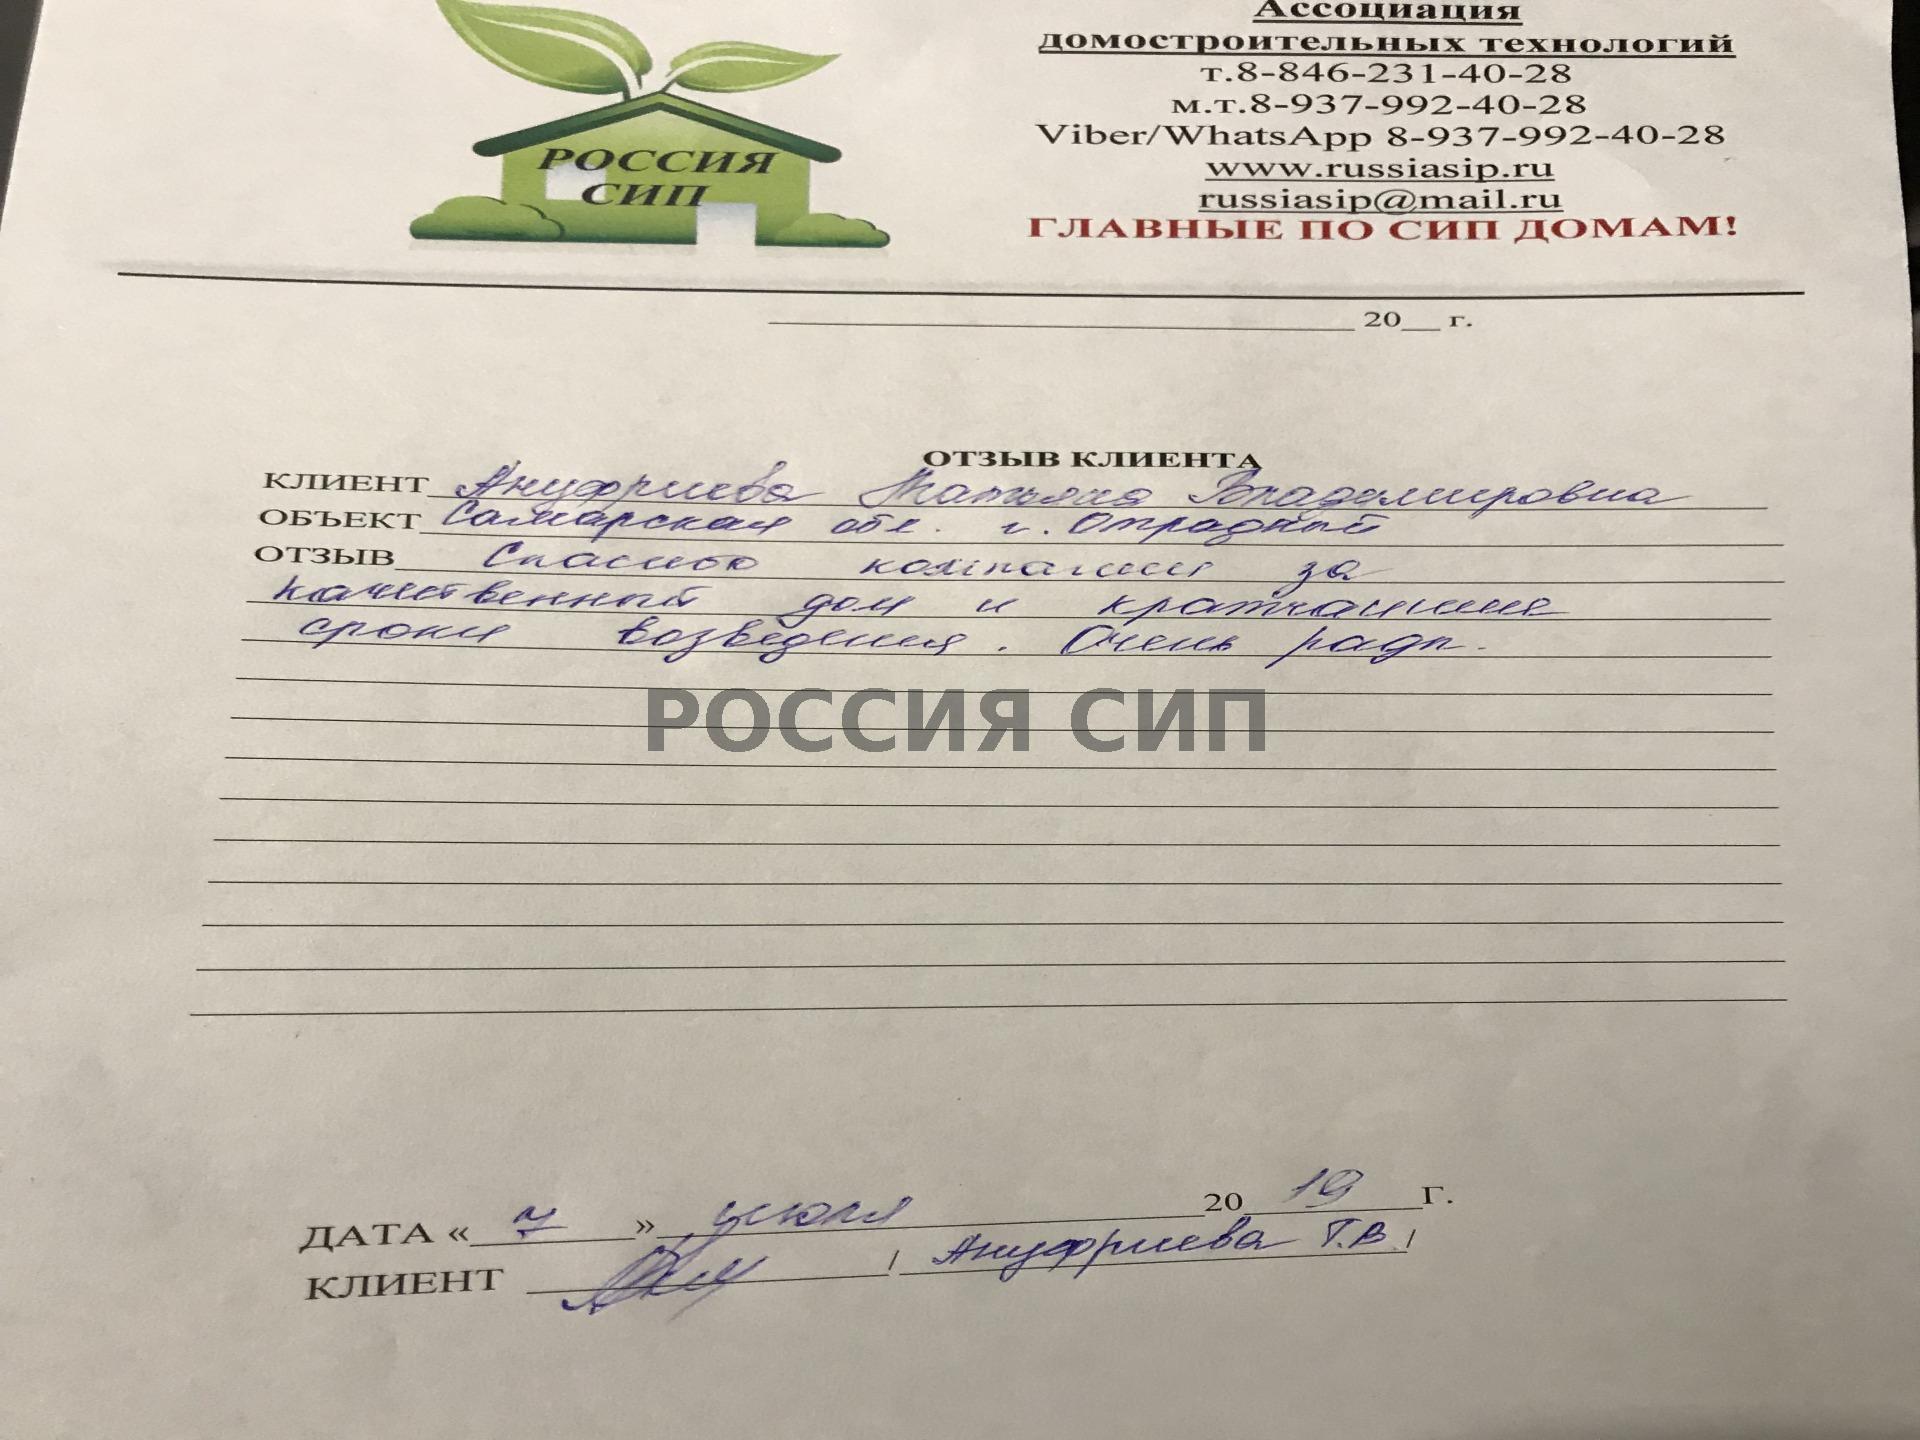 Ассоциация
домостроительных технологий
т.8-846-231-40-28
м.т.8-937-992-40-28
Viber/WhatsApp 8-937-992-40-28
www.russiasip.ru
russiasip@mail.ru
ГЛАВНЫЕ ПО СИП ДОМАМ!
РОССИЯ
СИП
20__ г.
ОТЗЫВ КЛИЕНТА
КЛИЕНТ Ануфриева Татьяна Владимировна
ОБЪЕКТ Самарская обл. г. Отрадный
ОТЗЫВ Спасибо компании за
качественный дом и кратчайшие
сроки возведения. Очень рады.
РОССИЯ СИП
ДАТА « 7 » июля 20 19 Г.
КЛИЕНТ / Ануфриева Т.В. /